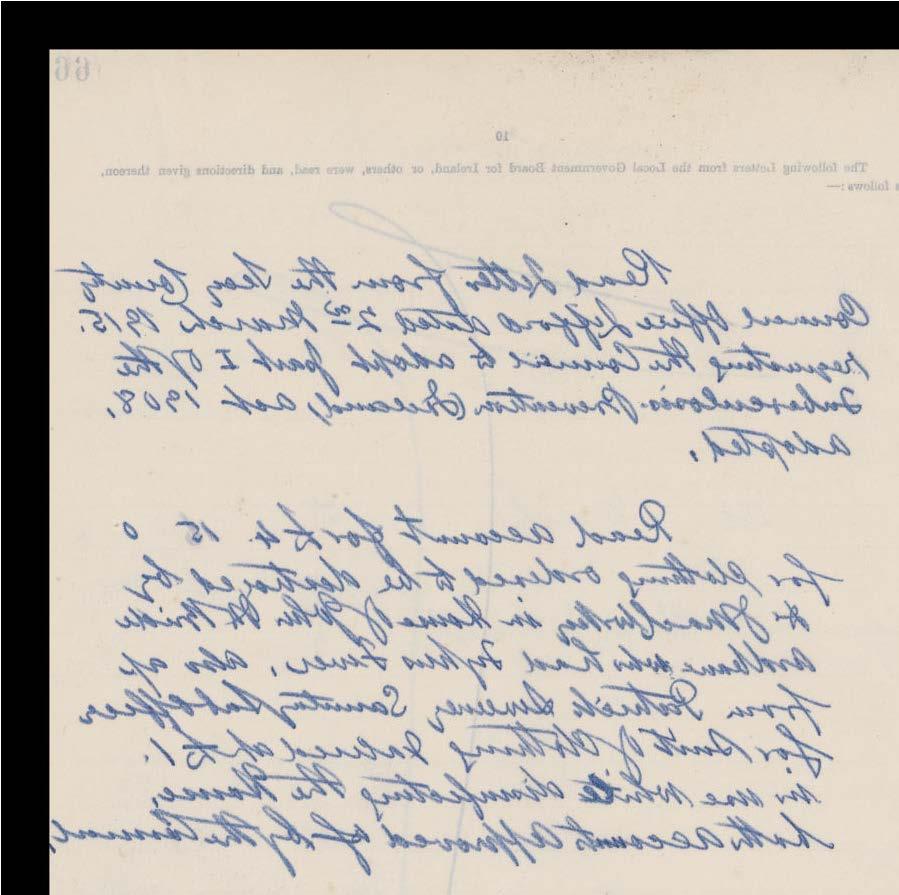 66
10
The following Letters from the Local Government Board for Ireland, or others, were read, and directions given thereon,
s follows:—
Read letter from the Secy County
Council Office Lifford dated 2nd March 1915.
requesting the Council to adopt part I of the
Tuberculosis Prevention (Ireland) act 1908.
adopted.
Read account for £4 15 0
for clothing ordered to be destroyed by
Dr in home of John McBride
who had Typhus Fever, also a/c
from Patrick Sweeney Sanitary SubOfficer
for Suit of Clothing Injured at £1.
in use while disinfecting the House,
both accounts approved of by the Council,